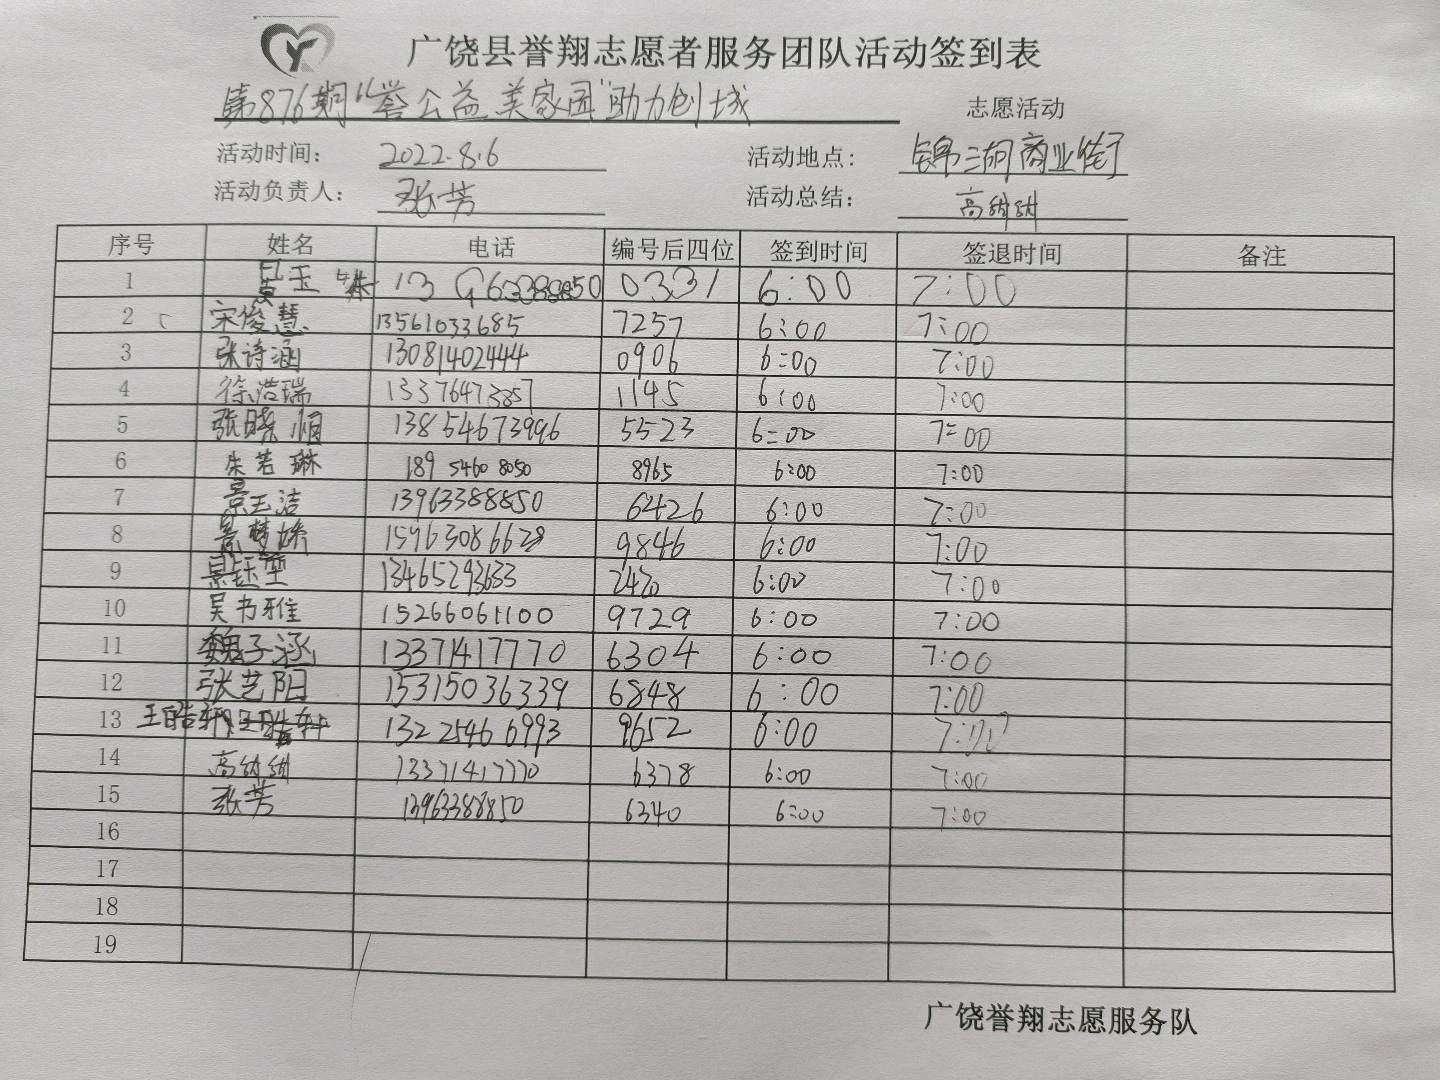 广饶县誉翔志愿者服务团队活动签到表
第876期"誉公益 美家园"助力创城 志愿活动
活动时间: 2022.8.6 活动地点: 锦湖商业街
活动负责人: 张芳 活动总结: 高纳纳
序号 姓名 电话 编号后四位 签到时间 签退时间 备注
1 景玉姝 13963388850 0331 6:00 7:00
2 宋俊慧 13561033685 7257 6:00 7:00
3 张诗涵 13081402444 0906 6:00 7:00
4 徐浩瑞 13376473857 1145 6:00 7:00
5 张晓娟 13854673996 5523 6:00 7:00
6 朱若琳 189 5460 8050 8965 6:00 7:00
7 景玉洁 13963388850 6426 6:00 7:00
8 景梦娇 15963086628 9846 6:00 7:00
9 景钰莹 13465293633 2420 6:00 7:00
10 吴书雅 15266061100 9729 6:00 7:00
11 魏子涵 13371417770 6304 6:00 7:00
12 张艺阳 15315036339 6848 6:00 7:00
13 王皓轩 132 2546 6993 9652 6:00 7:00
14 高纳纳 13371417770 6378 6:00 7:00
15 张芳 13963388850 6340 6:00 7:00
16
17
18
19
广饶誉翔志愿服务队